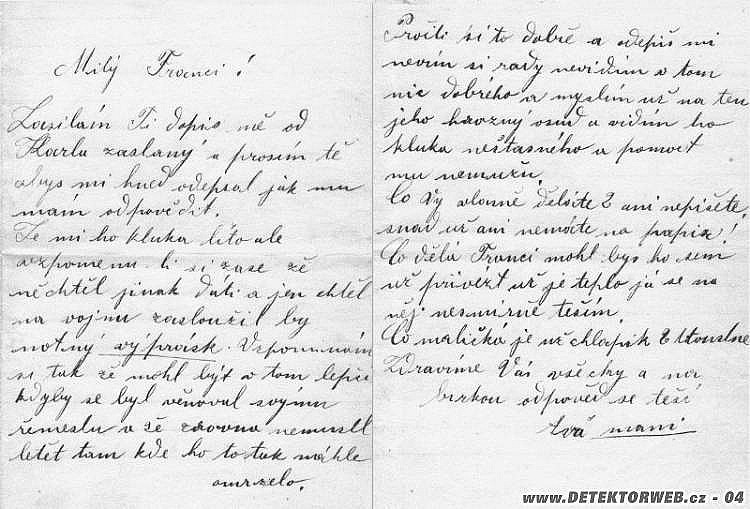 Milý Franci!
Zasílám Ti dopis mě od
Karla zaslaný a prosím tě
abys mi hned odepsal jak mu
mám odpovědít.
Je mi ho kluka líto ale
vzpomenu-li si zase že
nechtěl jinak dáti a jen chtěl
na vojnu zasloužil by
notný výprask. Vzpomínám
si tak že mohl být v tom lepší
kdyby se byl věnoval svýmu
řemeslu a že zrovna nemusel
letět tam kde ho to tak náhle
omrzelo.
Pročti si to dobře a odepiš mi
nevím si rady nevidím v tom
nic dobrého a myslím už na ten
jeho hrozný osud a vidím ho
kluka nešťasného a pomoct
mu nemužu.
Co Vy vlastně děláte ani nepíšete,
snad už ani nemáte na papír!
Co dělá Franci mohl bys ho sem
už přivézt už je teplo já se na
něj nesmírně těším.
Co maličká je už chlapík
Zdravíme Vás všechky a na
brzkou odpověď se těší
Tvá mami
www.DETEKTORWEB.cz - 04